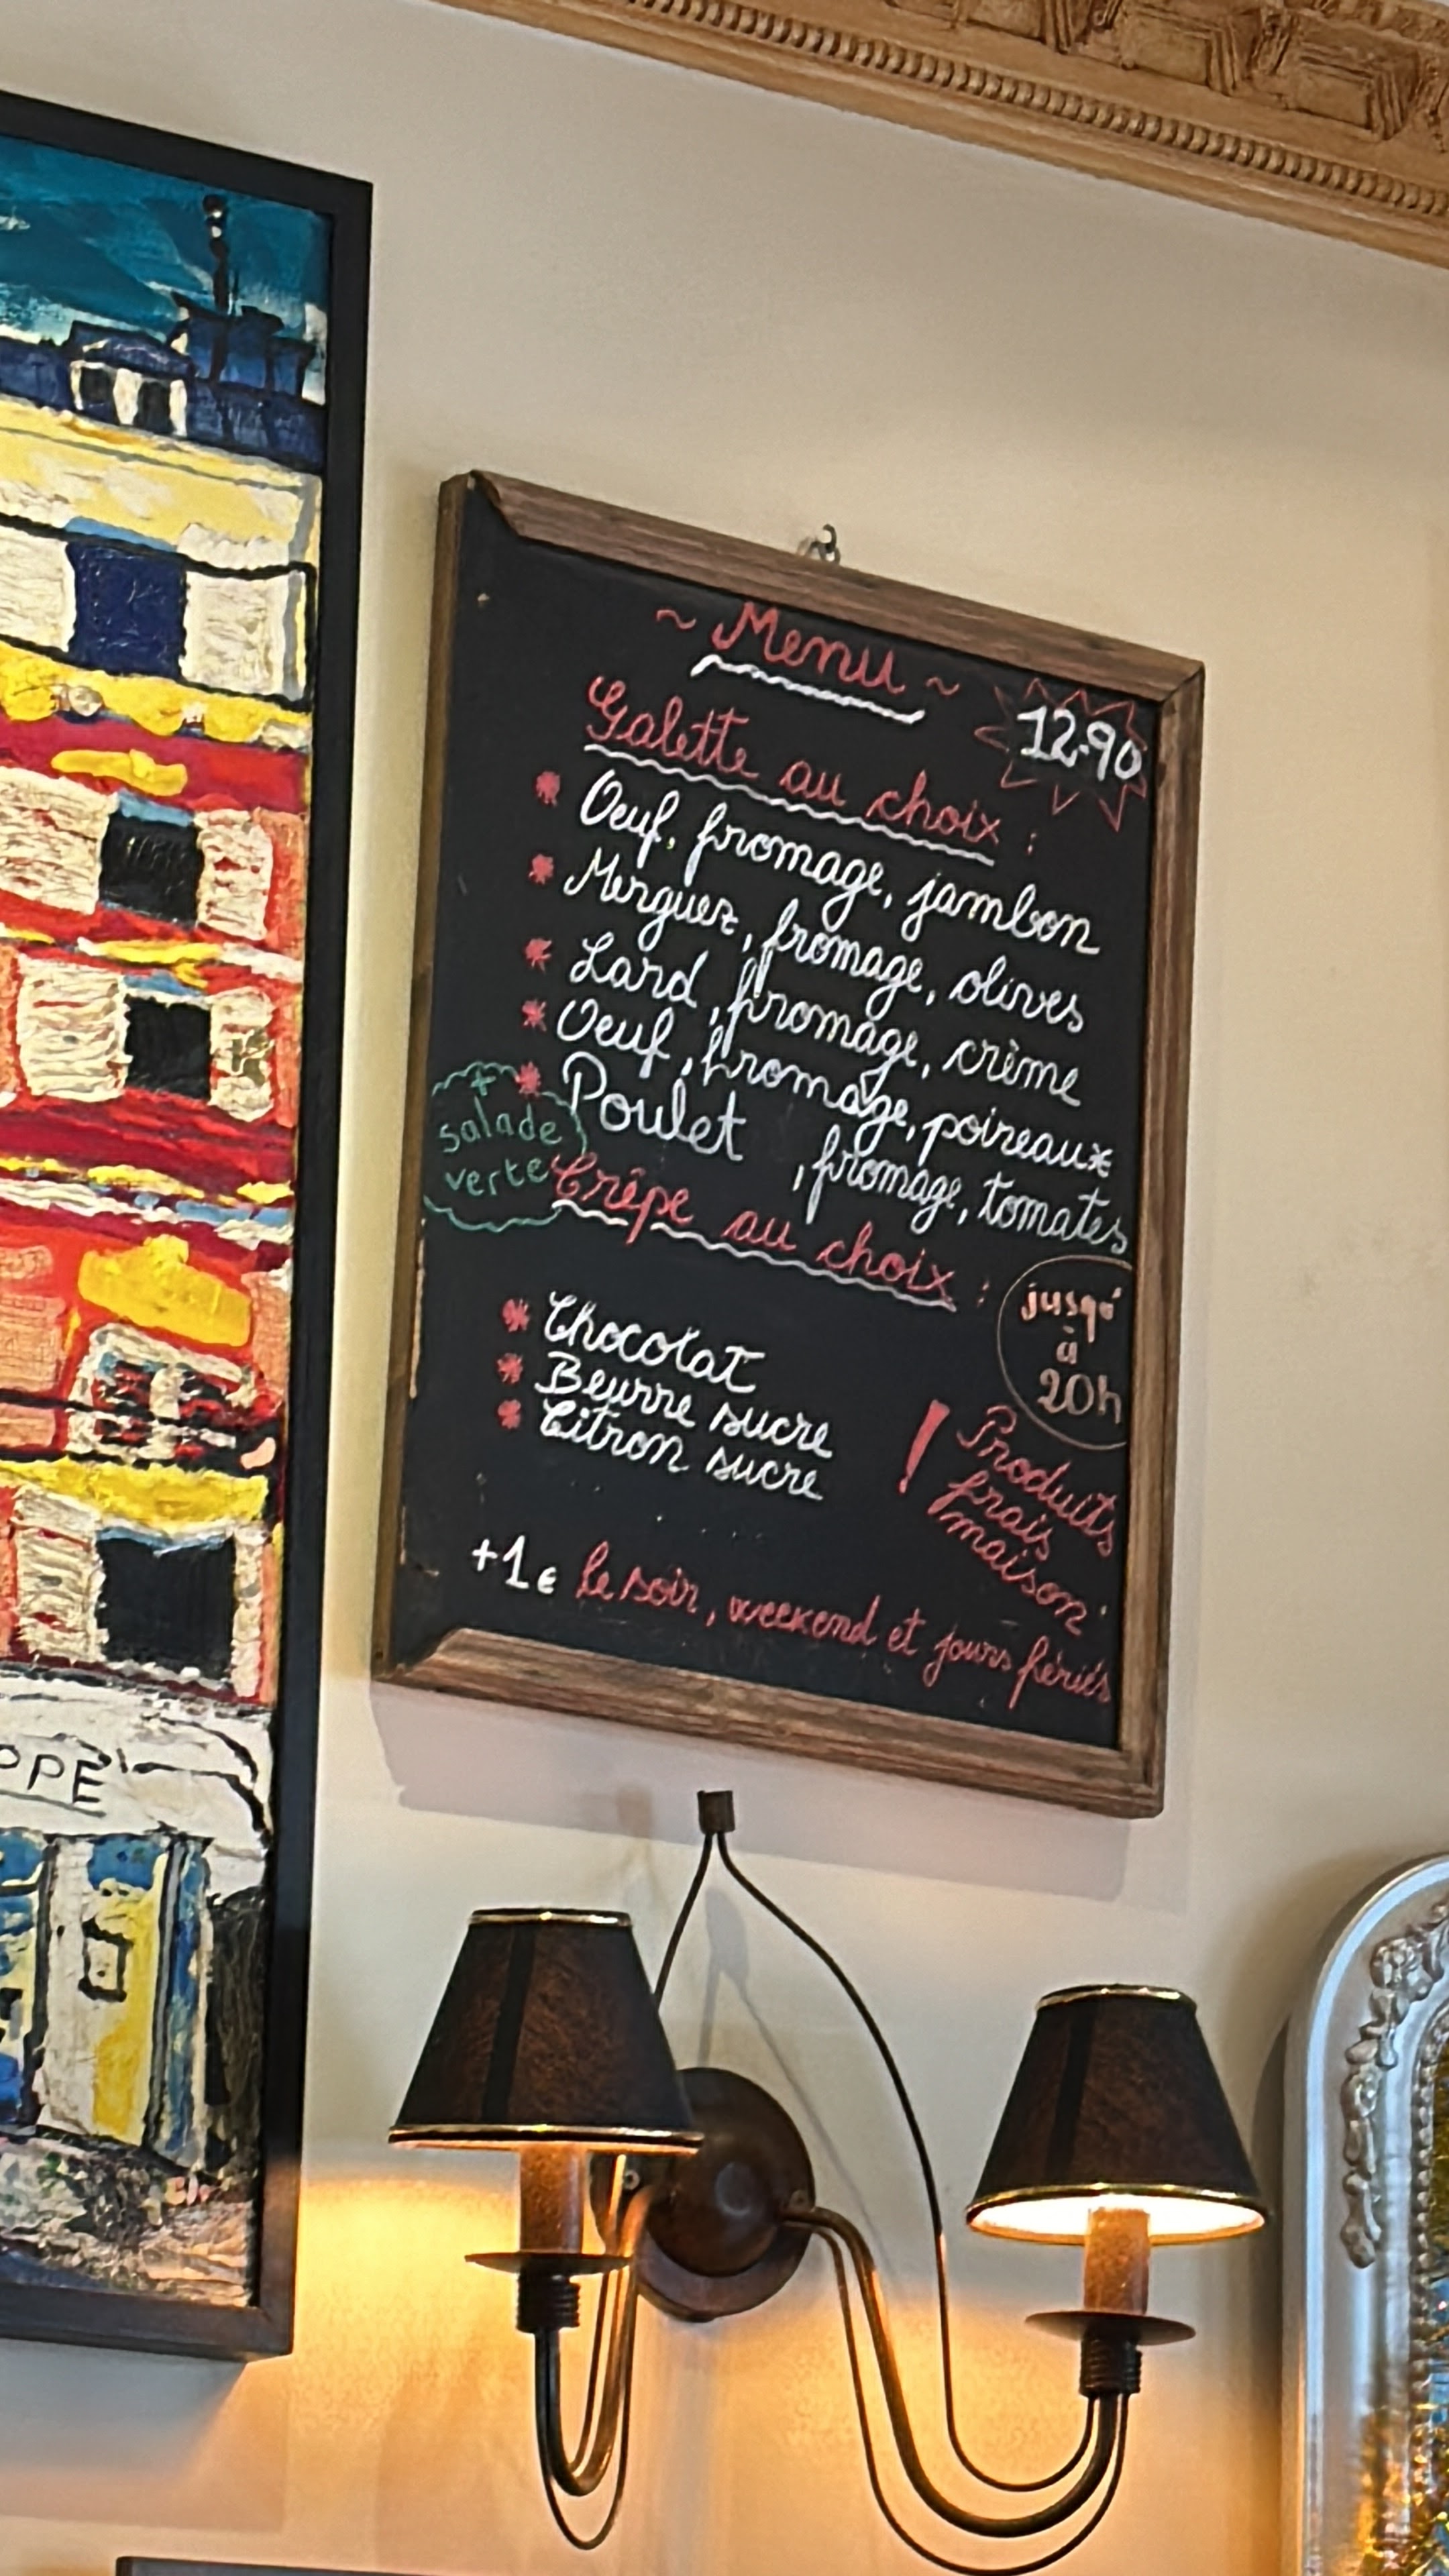 ~ Menu ~
12.90
Galette au choix :
* Oeuf, fromage, jambon
* Merguez, fromage, olives
* Lard, fromage, crème
* Oeuf, fromage, poireaux
* Poulet , fromage, tomates
+
salade
verte
Crêpe au choix :
jusqu'
à
20h
* Chocolat
* Beurre sucre
* Citron sucre
! Produits
frais
maison
+1€ le soir, weekend et jours fériés
PPE